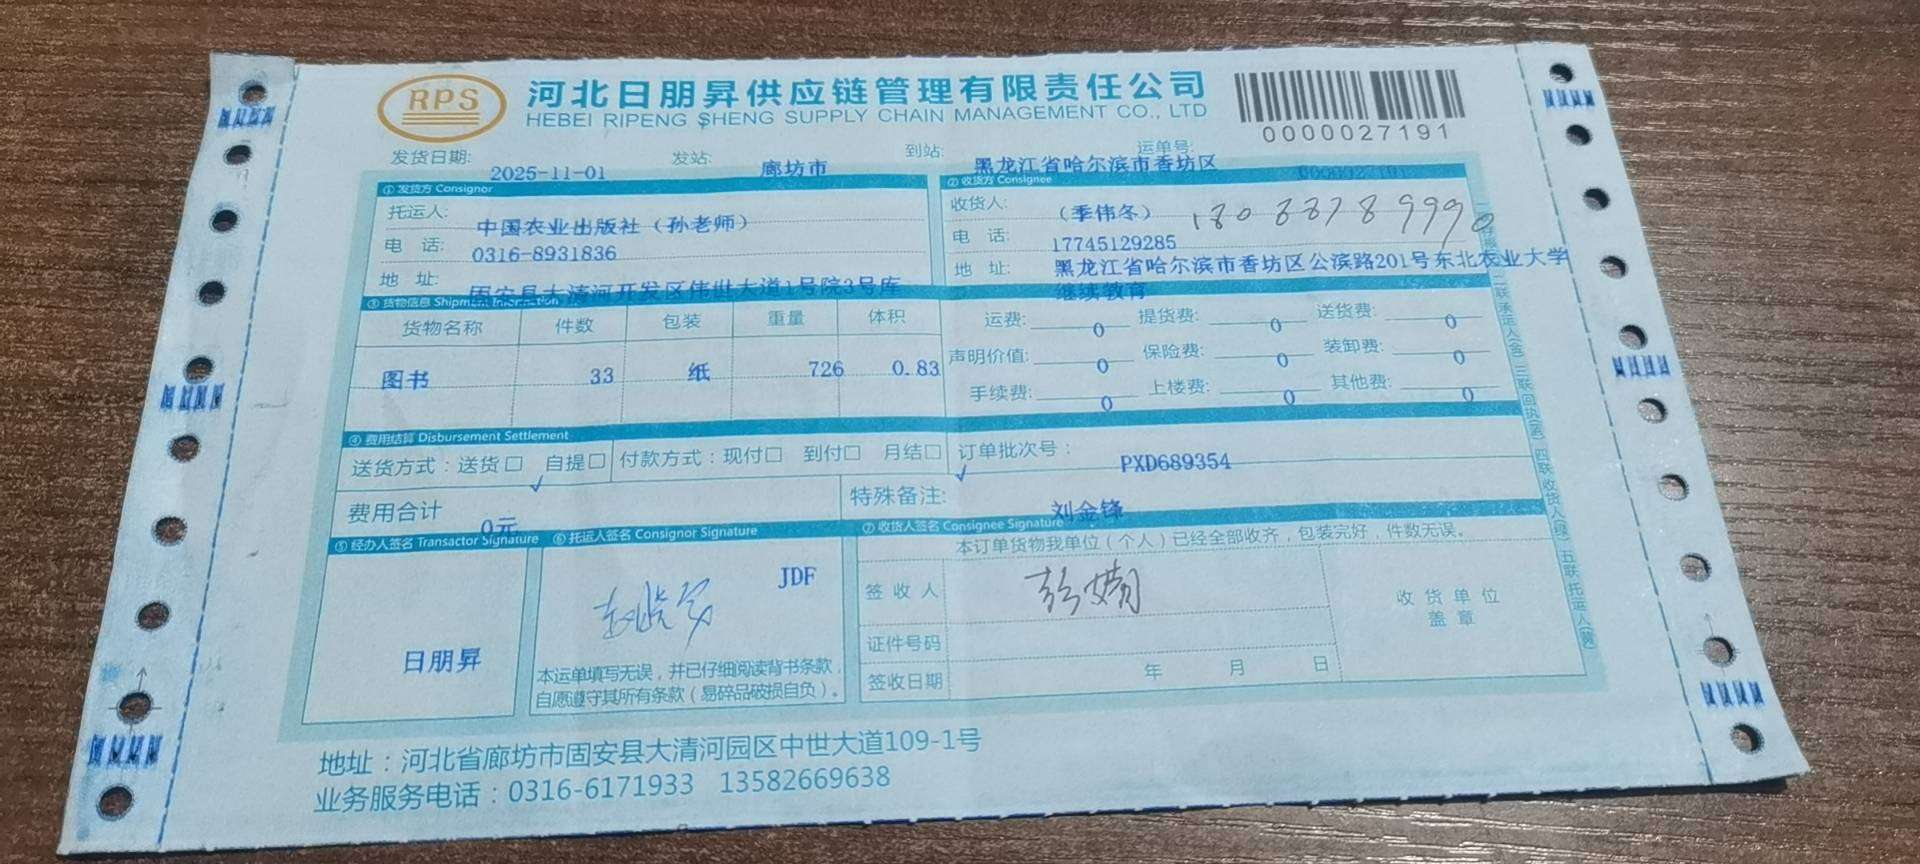 RPS 河北日朋昇供应链管理有限责任公司
HEBEI RIPENG SHENG SUPPLY CHAIN MANAGEMENT CO., LTD
0000027191
发货日期: 2025-11-01 发站: 廊坊市 到站: 黑龙江省哈尔滨市香坊区 运单号: 0000027191
① 发货方 Consignor
托运人: 中国农业出版社（孙老师）
电 话: 0316-8931836
地 址: 固安县大清河开发区伟世大道1号院3号库
② 收货方 Consignee
收货人: （季伟冬）
电 话: 17745129285
地 址: 黑龙江省哈尔滨市香坊区公滨路201号东北农业大学
继续教育
③ 货物信息 Shipment Information
货物名称 件数 包装 重量 体积
图书 33 纸 726 0.83
运费: 0 提货费: 0 送货费: 0
声明价值: 0 保险费: 0 装卸费: 0
手续费: 0 上楼费: 0 其他费: 0
④ 费用结算 Disbursement Settlement
送货方式：送货□ 自提□ 付款方式：现付□ 到付□ 月结□ 订单批次号： PXD689354
✓ ✓
费用合计 0元 特殊备注: 刘金锋
⑤ 经办人签名 Transactor Signature
日朋昇
⑥ 托运人签名 Consignor Signature
JDF
本运单填写无误，并已仔细阅读背书条款，
自愿遵守其所有条款（易碎品破损自负）。
⑦ 收货人签名 Consignee Signature
本订单货物我单位（个人）已经全部收齐，包装完好，件数无误。
签 收 人
证件号码
签收日期 年 月 日
收 货 单 位
盖 章
地址：河北省廊坊市固安县大清河园区中世大道109-1号
业务服务电话：0316-6171933 13582669638